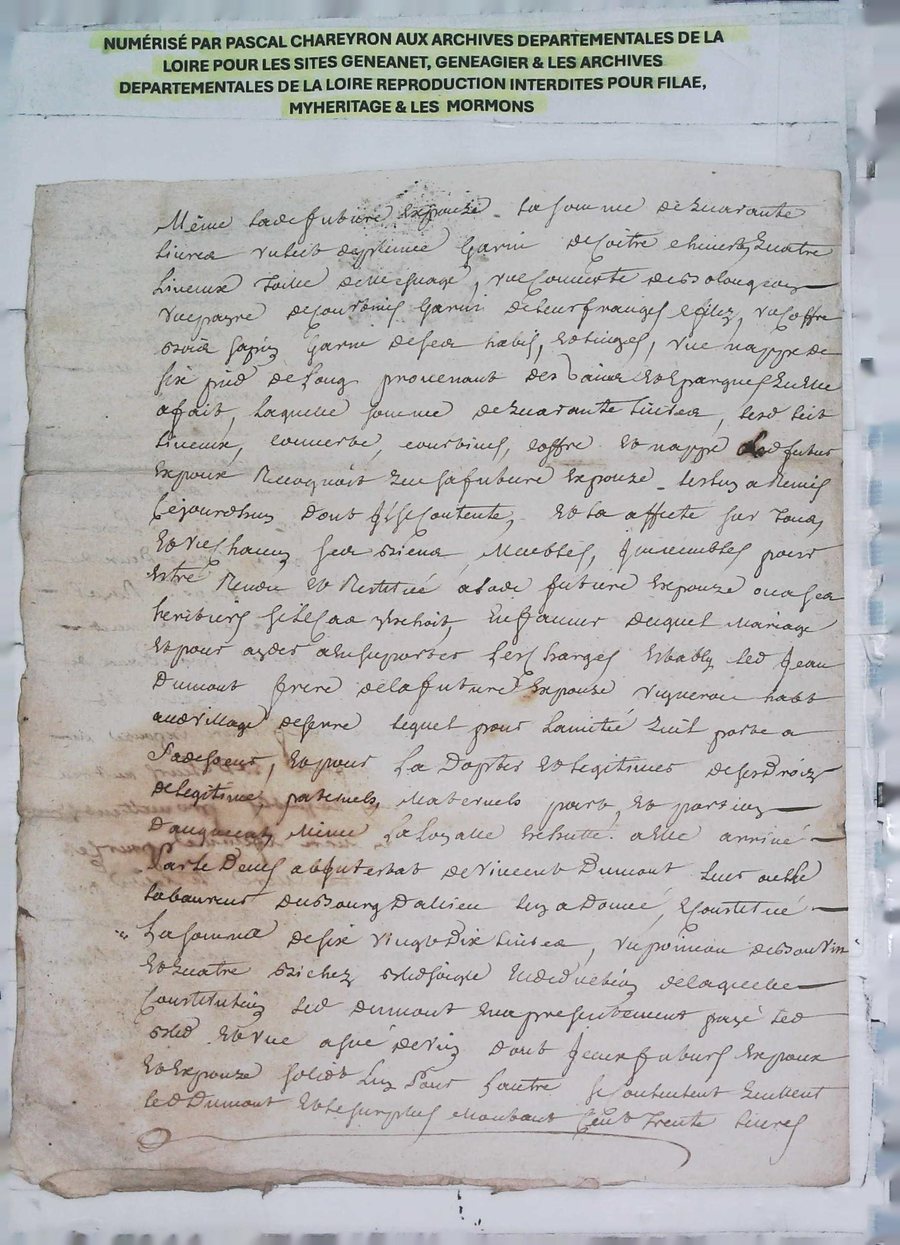 NUMÉRISÉ PAR PASCAL CHAREYRON AUX ARCHIVES DEPARTEMENTALES DE LA
LOIRE POUR LES SITES GENEANET, GENEAGIER & LES ARCHIVES
DEPARTEMENTALES DE LA LOIRE REPRODUCTION INTERDITES POUR FILAE,
MYHERITAGE & LES MORMONS
Même lade future Expouze la somme de quarante
Livres un lit de plume Garni de coitre chevet quatre
Linceux toille de mesnage, une couverte de
une payre de courtines Garni de leur franges un coffre
bois sapin Garni de ses habis, et linges, une nappe de
six pied de long provenant des et Epargnes quelle
a fait, laquelle somme de quarante Livres, led lit
Linceux, couverte, courtines, coffre et nappe led futur
Expoux Recognoit que sa future Expouze luy a Remis
Cejourdhuy dont Il se Contente, Et la affecte sur tous,
et uns chacung ses biens, Meubles, Immeubles pour
Estre Rendu et Restitué a lade future Expouze ou a ses
heritiers sil En faveur duquel Mariage
Et pour ayder a en suporter les charges Estably led Jean
Dumont frere de la future Expouze vigneron habt
aud village de lequel pour lamitié quil porte a
Sade soeur, et pour la de ses Droits
de legitime paternels, Maternels part, et portion
Même arrivé
Par le Deces abintestat de Vincent Dumont
laboureur du Bourg Dallieu luy a Donné, Constitué
La somme de six vingt Dix Livres, un poinson de bon vin
Et quatre bichez bled seigle de laquelle
Constitution led Dumont en a presentement payé led
bled et une de vin dont Iceux futurs Expoux
Et Expouze solidt Lun Pour Lautre se contentent
led Dumont Et le surplus Montant Cent trente Livres